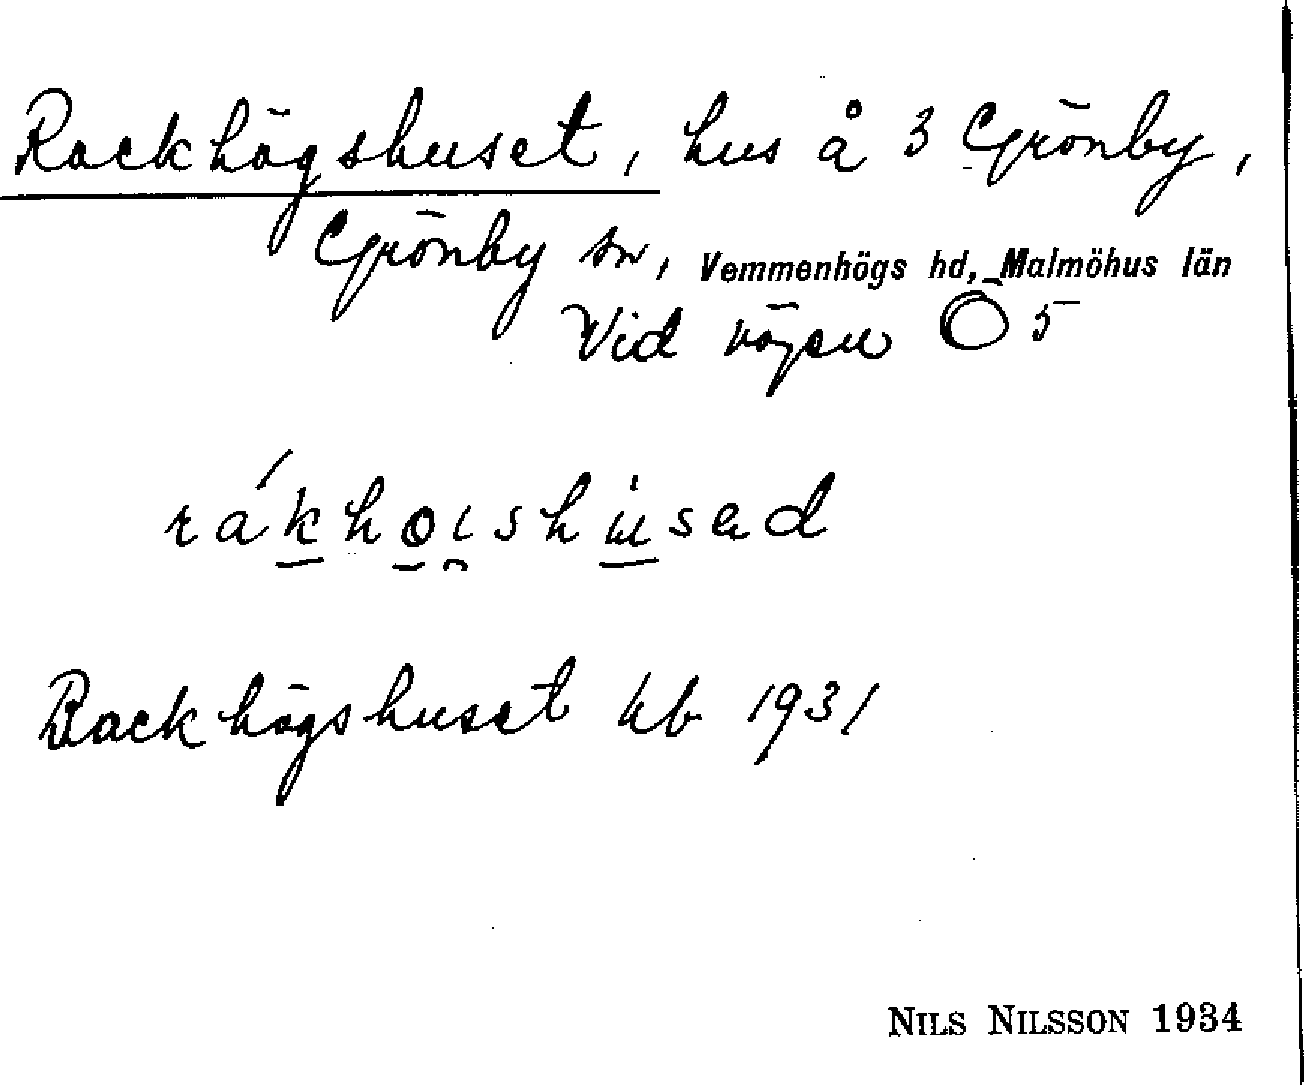 Rackhögshuset, hus å 3 Grönby,
Grönby sn, Vemmenhögs hd, Malmöhus län
Vid vägen Ö 5
rákhoıshu̇sad
Backhögshuset kb 1931
NILS NILSSON 1934